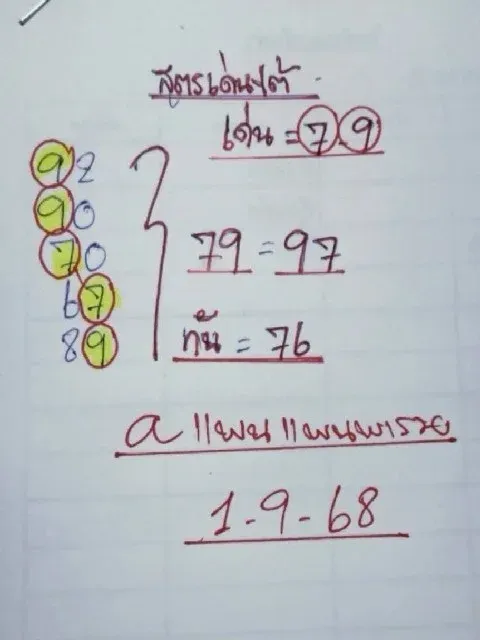 สูตรเด่นุต้
เด่น = 7.9
92
90
70
67
89
79 = 97
กัน = 76
a แพน แพนพารวย
1-9-68